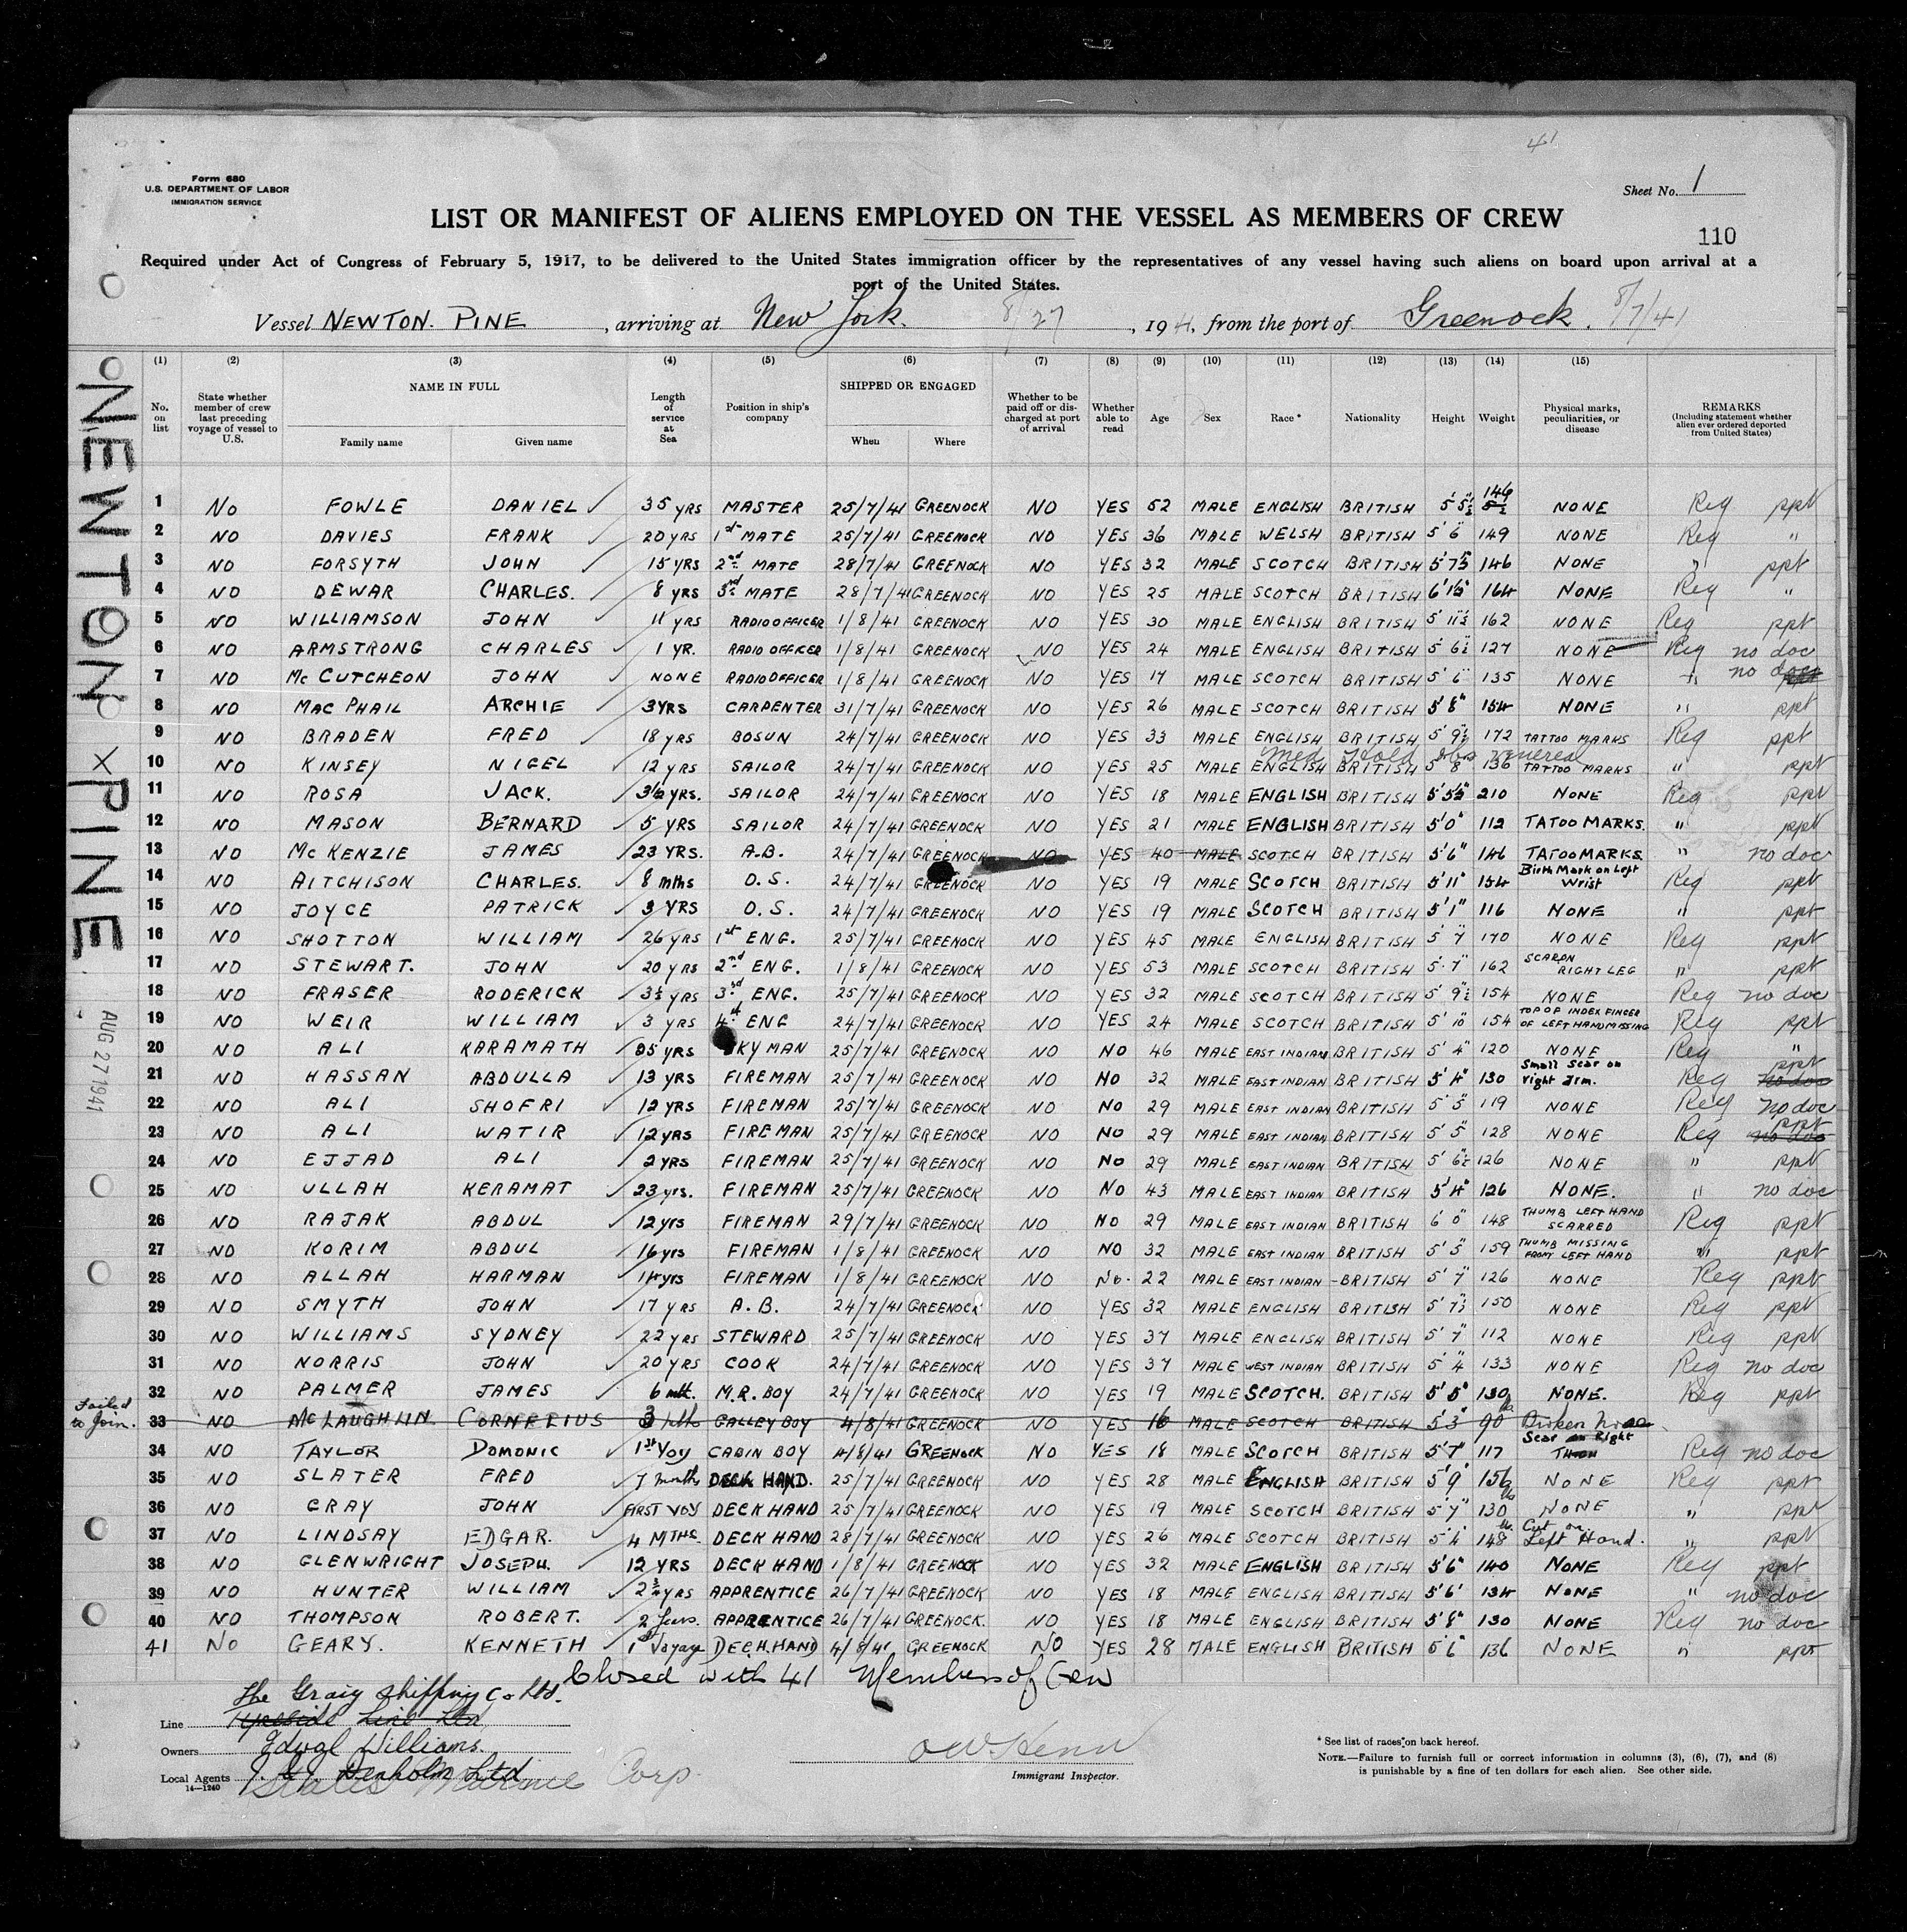 41
Form 680
U.S. DEPARTMENT OF LABOR
IMMIGRATION SERVICE
Sheet No. 1
LIST OR MANIFEST OF ALIENS EMPLOYED ON THE VESSEL AS MEMBERS OF CREW
110
Required under Act of Congress of February 5, 1917, to be delivered to the United States immigration officer by the representatives of any vessel having such aliens on board upon arrival at a
port of the United States.
Vessel NEWTON PINE, arriving at New York. 8/27, 1941, from the port of Greenock. 8/7/41
NEWTON X PINE
AUG 27 1941
(1) (2) (3) (4) (5) (6) (7) (8) (9) (10) (11) (12) (13) (14) (15)
No. on list
State whether member of crew last preceding voyage of vessel to U.S.
NAME IN FULL
Family name Given name
Length of service at Sea
Position in ship's company
SHIPPED OR ENGAGED
When Where
Whether to be paid off or discharged at port of arrival
Whether able to read
Age Sex Race* Nationality Height Weight
Physical marks, peculiarities, or disease
REMARKS
(Including statement whether alien ever ordered deported from United States)
1 NO FOWLE DANIEL ✓ 35 YRS MASTER 25/7/41 GREENOCK NO YES 52 MALE ENGLISH BRITISH 5' 5½" 146 NONE Reg ppt
2 NO DAVIES FRANK 20 YRS 1st MATE 25/7/41 GREENOCK NO YES 36 MALE WELSH BRITISH 5' 6" 149 NONE Reg "
3 NO FORSYTH JOHN 15 YRS 2nd MATE 28/7/41 GREENOCK NO YES 32 MALE SCOTCH BRITISH 5' 7½" 146 NONE " ppt
4 NO DEWAR CHARLES. 8 YRS 3rd MATE 28/7/41 GREENOCK NO YES 25 MALE SCOTCH BRITISH 6' 1½" 164 NONE Reg "
5 NO WILLIAMSON JOHN 11 YRS RADIO OFFICER 1/8/41 GREENOCK NO YES 30 MALE ENGLISH BRITISH 5' 11½" 162 NONE Reg ppt
6 NO ARMSTRONG CHARLES 1 YR. RADIO OFFICER 1/8/41 GREENOCK NO YES 24 MALE ENGLISH BRITISH 5' 6½" 127 NONE Reg no doc
7 NO McCUTCHEON JOHN NONE RADIO OFFICER 1/8/41 GREENOCK NO YES 17 MALE SCOTCH BRITISH 5' 6" 135 NONE " no doc
8 NO MACPHAIL ARCHIE 3 YRS CARPENTER 31/7/41 GREENOCK NO YES 26 MALE SCOTCH BRITISH 5' 8" 154 NONE " ppt
9 NO BRADEN FRED 18 YRS BOSUN 24/7/41 GREENOCK NO YES 33 MALE ENGLISH BRITISH 5' 9½" 172 TATTOO MARKS Reg ppt
Med Hold Obs venereal
10 NO KINSEY NIGEL 12 YRS SAILOR 24/7/41 GREENOCK NO YES 25 MALE ENGLISH BRITISH 5' 8" 136 TATTOO MARKS " ppt
11 NO ROSA JACK. 3½ YRS. SAILOR 24/7/41 GREENOCK NO YES 18 MALE ENGLISH BRITISH 5' 5½" 210 NONE Reg ppt
12 NO MASON BERNARD 5 YRS SAILOR 24/7/41 GREENOCK NO YES 21 MALE ENGLISH BRITISH 5' 0" 112 TATOO MARKS. " ppt
13 NO McKENZIE JAMES 23 YRS. A.B. 24/7/41 GREENOCK NO YES 40 MALE SCOTCH BRITISH 5' 6" 146 TATOO MARKS. " no doc
14 NO AITCHISON CHARLES. 8 mths O.S. 24/7/41 GREENOCK NO YES 19 MALE SCOTCH BRITISH 5' 11" 154 Birth Mark on Left Wrist Reg ppt
15 NO JOYCE PATRICK 3 YRS O.S. 24/7/41 GREENOCK NO YES 19 MALE SCOTCH BRITISH 5' 1" 116 NONE " ppt
16 NO SHOTTON WILLIAM 26 YRS 1st ENG. 25/7/41 GREENOCK NO YES 45 MALE ENGLISH BRITISH 5' 7" 170 NONE Reg ppt
17 NO STEWART. JOHN 20 YRS 2nd ENG. 1/8/41 GREENOCK NO YES 53 MALE SCOTCH BRITISH 5' 7" 162 SCAR ON RIGHT LEG " ppt
18 NO FRASER RODERICK 3½ YRS 3rd ENG. 25/7/41 GREENOCK NO YES 32 MALE SCOTCH BRITISH 5' 9½" 154 NONE Reg no doc
19 NO WEIR WILLIAM 3 YRS 4th ENG 24/7/41 GREENOCK NO YES 24 MALE SCOTCH BRITISH 5' 10" 154 TOP OF INDEX FINGER OF LEFT HAND MISSING Reg ppt
20 NO ALI KARAMATH 25 YRS KYMAN 25/7/41 GREENOCK NO NO 46 MALE EAST INDIAN BRITISH 5' 4" 120 NONE Reg "
21 NO HASSAN ABDULLA 13 YRS FIREMAN 25/7/41 GREENOCK NO NO 32 MALE EAST INDIAN BRITISH 5' 4" 130 Small Scar on right arm. Reg no doc ppt
22 NO ALI SHOFRI 12 YRS FIREMAN 25/7/41 GREENOCK NO NO 29 MALE EAST INDIAN BRITISH 5' 5" 119 NONE Reg no doc
23 NO ALI WATIR 12 YRS FIREMAN 25/7/41 GREENOCK NO NO 29 MALE EAST INDIAN BRITISH 5' 5" 128 NONE Reg no doc ppt
24 NO EJJAD ALI 2 YRS FIREMAN 25/7/41 GREENOCK NO NO 29 MALE EAST INDIAN BRITISH 5' 6½" 126 NONE " ppt
25 NO ULLAH KERAMAT 23 yrs. FIREMAN 25/7/41 GREENOCK NO NO 43 MALE EAST INDIAN BRITISH 5' 4" 126 NONE. " no doc
26 NO RAJAK ABDUL 12 yrs FIREMAN 29/7/41 GREENOCK NO NO 29 MALE EAST INDIAN BRITISH 6' 0" 148 THUMB LEFT HAND SCARRED Reg ppt
27 NO KORIM ABDUL 16 yrs FIREMAN 1/8/41 GREENOCK NO NO 32 MALE EAST INDIAN BRITISH 5' 5" 159 THUMB MISSING FROM LEFT HAND " ppt
28 NO ALLAH HARMAN 14 yrs FIREMAN 1/8/41 GREENOCK NO No. 22 MALE EAST INDIAN BRITISH 5' 7" 126 NONE Reg ppt
29 NO SMYTH JOHN 17 YRS A.B. 24/7/41 GREENOCK NO YES 32 MALE ENGLISH BRITISH 5' 7½" 150 NONE Reg ppt
30 NO WILLIAMS SYDNEY 22 YRS STEWARD 25/7/41 GREENOCK NO YES 37 MALE ENGLISH BRITISH 5' 7" 112 NONE Reg ppt
31 NO NORRIS JOHN 20 YRS COOK 24/7/41 GREENOCK NO YES 37 MALE WEST INDIAN BRITISH 5' 4" 133 NONE Reg no doc
32 NO PALMER JAMES 6 mth. M.R. BOY 24/7/41 GREENOCK NO YES 19 MALE SCOTCH. BRITISH 5' 5" 130 NONE. Reg ppt
Failed to Join. 33 NO McLAUGHLIN. CORNELIUS 3 mth GALLEY BOY 4/8/41 GREENOCK NO YES 16 MALE SCOTCH BRITISH 5' 3" 90 Broken Nose
34 NO TAYLOR DOMONIC 1st Voy CABIN BOY 4/8/41 GREENOCK NO YES 18 MALE SCOTCH BRITISH 5' 7" 117 Scar on Right Reg no doc
35 NO SLATER FRED 7 months DECK HAND. 25/7/41 GREENOCK NO YES 28 MALE ENGLISH BRITISH 5' 9" 156 NONE Reg ppt
36 NO GRAY JOHN FIRST VOY DECK HAND 25/7/41 GREENOCK NO YES 19 MALE SCOTCH BRITISH 5' 7" 130 lbs NONE " ppt
37 NO LINDSAY EDGAR. 4 MTHS DECK HAND 28/7/41 GREENOCK NO YES 26 MALE SCOTCH BRITISH 5' 4" 148 lb. Cut on Left Hand. " ppt
38 NO GLENWRIGHT JOSEPH. 12 YRS DECK HAND 1/8/41 GREENOCK NO YES 32 MALE ENGLISH BRITISH 5' 6" 140 NONE Reg ppt
39 NO HUNTER WILLIAM 2¾ YRS APPRENTICE 26/7/41 GREENOCK NO YES 18 MALE ENGLISH BRITISH 5' 6" 134 NONE " no doc
40 NO THOMPSON ROBERT. 2 Years. APPRENTICE 26/7/41 GREENOCK. NO YES 18 MALE ENGLISH BRITISH 5' 8" 130 NONE Reg no doc
41 NO GEARY. KENNETH 1st Voyage DECK HAND 4/8/41 GREENOCK NO YES 28 MALE ENGLISH BRITISH 5' 6" 136 NONE " ppt
Closed with 41 Members of Crew
The Graig Shipping Co Ltd.
Line Tyneside Line Ltd
Owners Idwal Williams.
Local Agents J. & J. Denholm Ltd
States Marine Corp.
14—1240
Immigrant Inspector.
* See list of races on back hereof.
NOTE.—Failure to furnish full or correct information in columns (3), (6), (7), and (8)
is punishable by a fine of ten dollars for each alien. See other side.